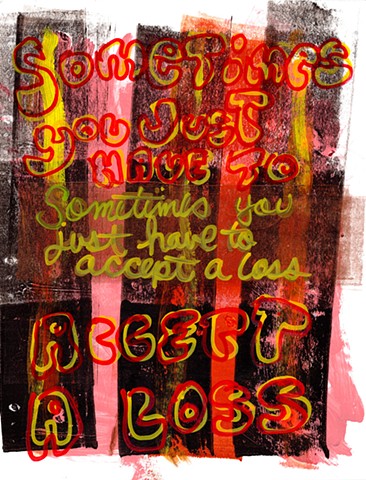 SOMETIMES
YOU JUST
HAVE TO
Sometimes you
just have to
accept a loss
ACCEPT
A LOSS